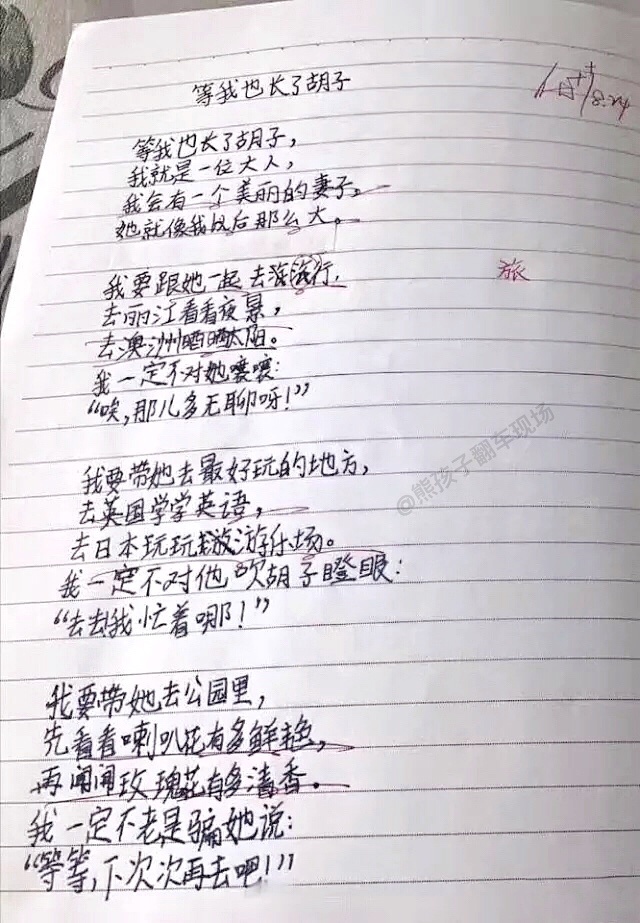 等我也长了胡子
优++
8.24
等我也长了胡子，
我就是一位大人，
我会有一个美丽的妻子。
她就像我以后那么大。
我要跟她一起去海边行，
旅
去丽江看看夜景，
去澳洲晒晒太阳。
我一定不对她嚷嚷：
“唉，那儿多无聊呀！”
@熊孩子翻车现场
我要带她去最好玩的地方，
去英国学学英语，
去日本玩玩游乐场。
我一定不对他吹胡子瞪眼：
“去去我忙着哪！”
我要带她去公园里，
先看看喇叭花有多鲜艳，
再闻闻玫瑰花有多清香。
我一定不老是骗她说：
“等等，下次次再去吧！”